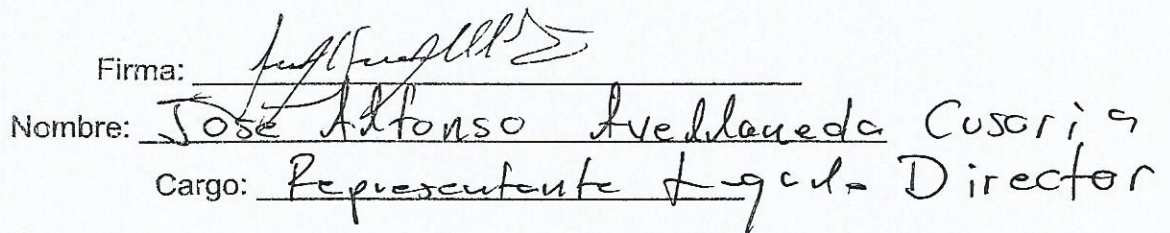 Firma:
Nombre: José Alfonso Avellaneda Cusaria
Cargo: Representante Legal - Director